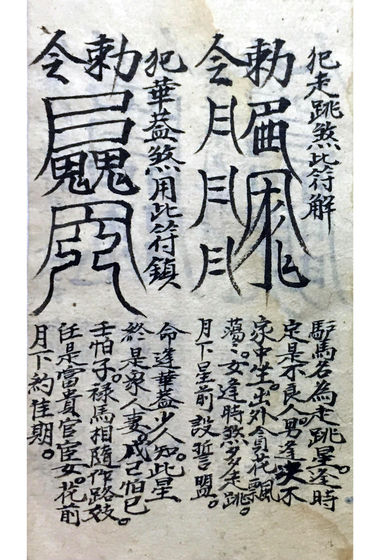 犯走跳煞此符解
勅
令月月月
馬名為走跳星。逢時
定是不良人。男逢決不
家中坐。出外貪花飄
蕩。女逢時煞多走跳。
月下星前設誓盟。
犯華蓋煞用此符鎮
勅
令
命逢華蓋少人知此星
於是家人妻。戊己怕巳
壬怕子。祿馬相隨作路妓
任是富貴官宦女。花前
月下約佳期。